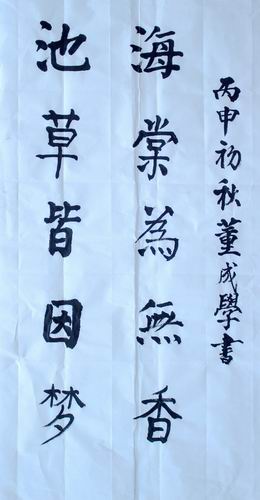 丙申初秋董成學書
海棠為無香
池草皆因梦